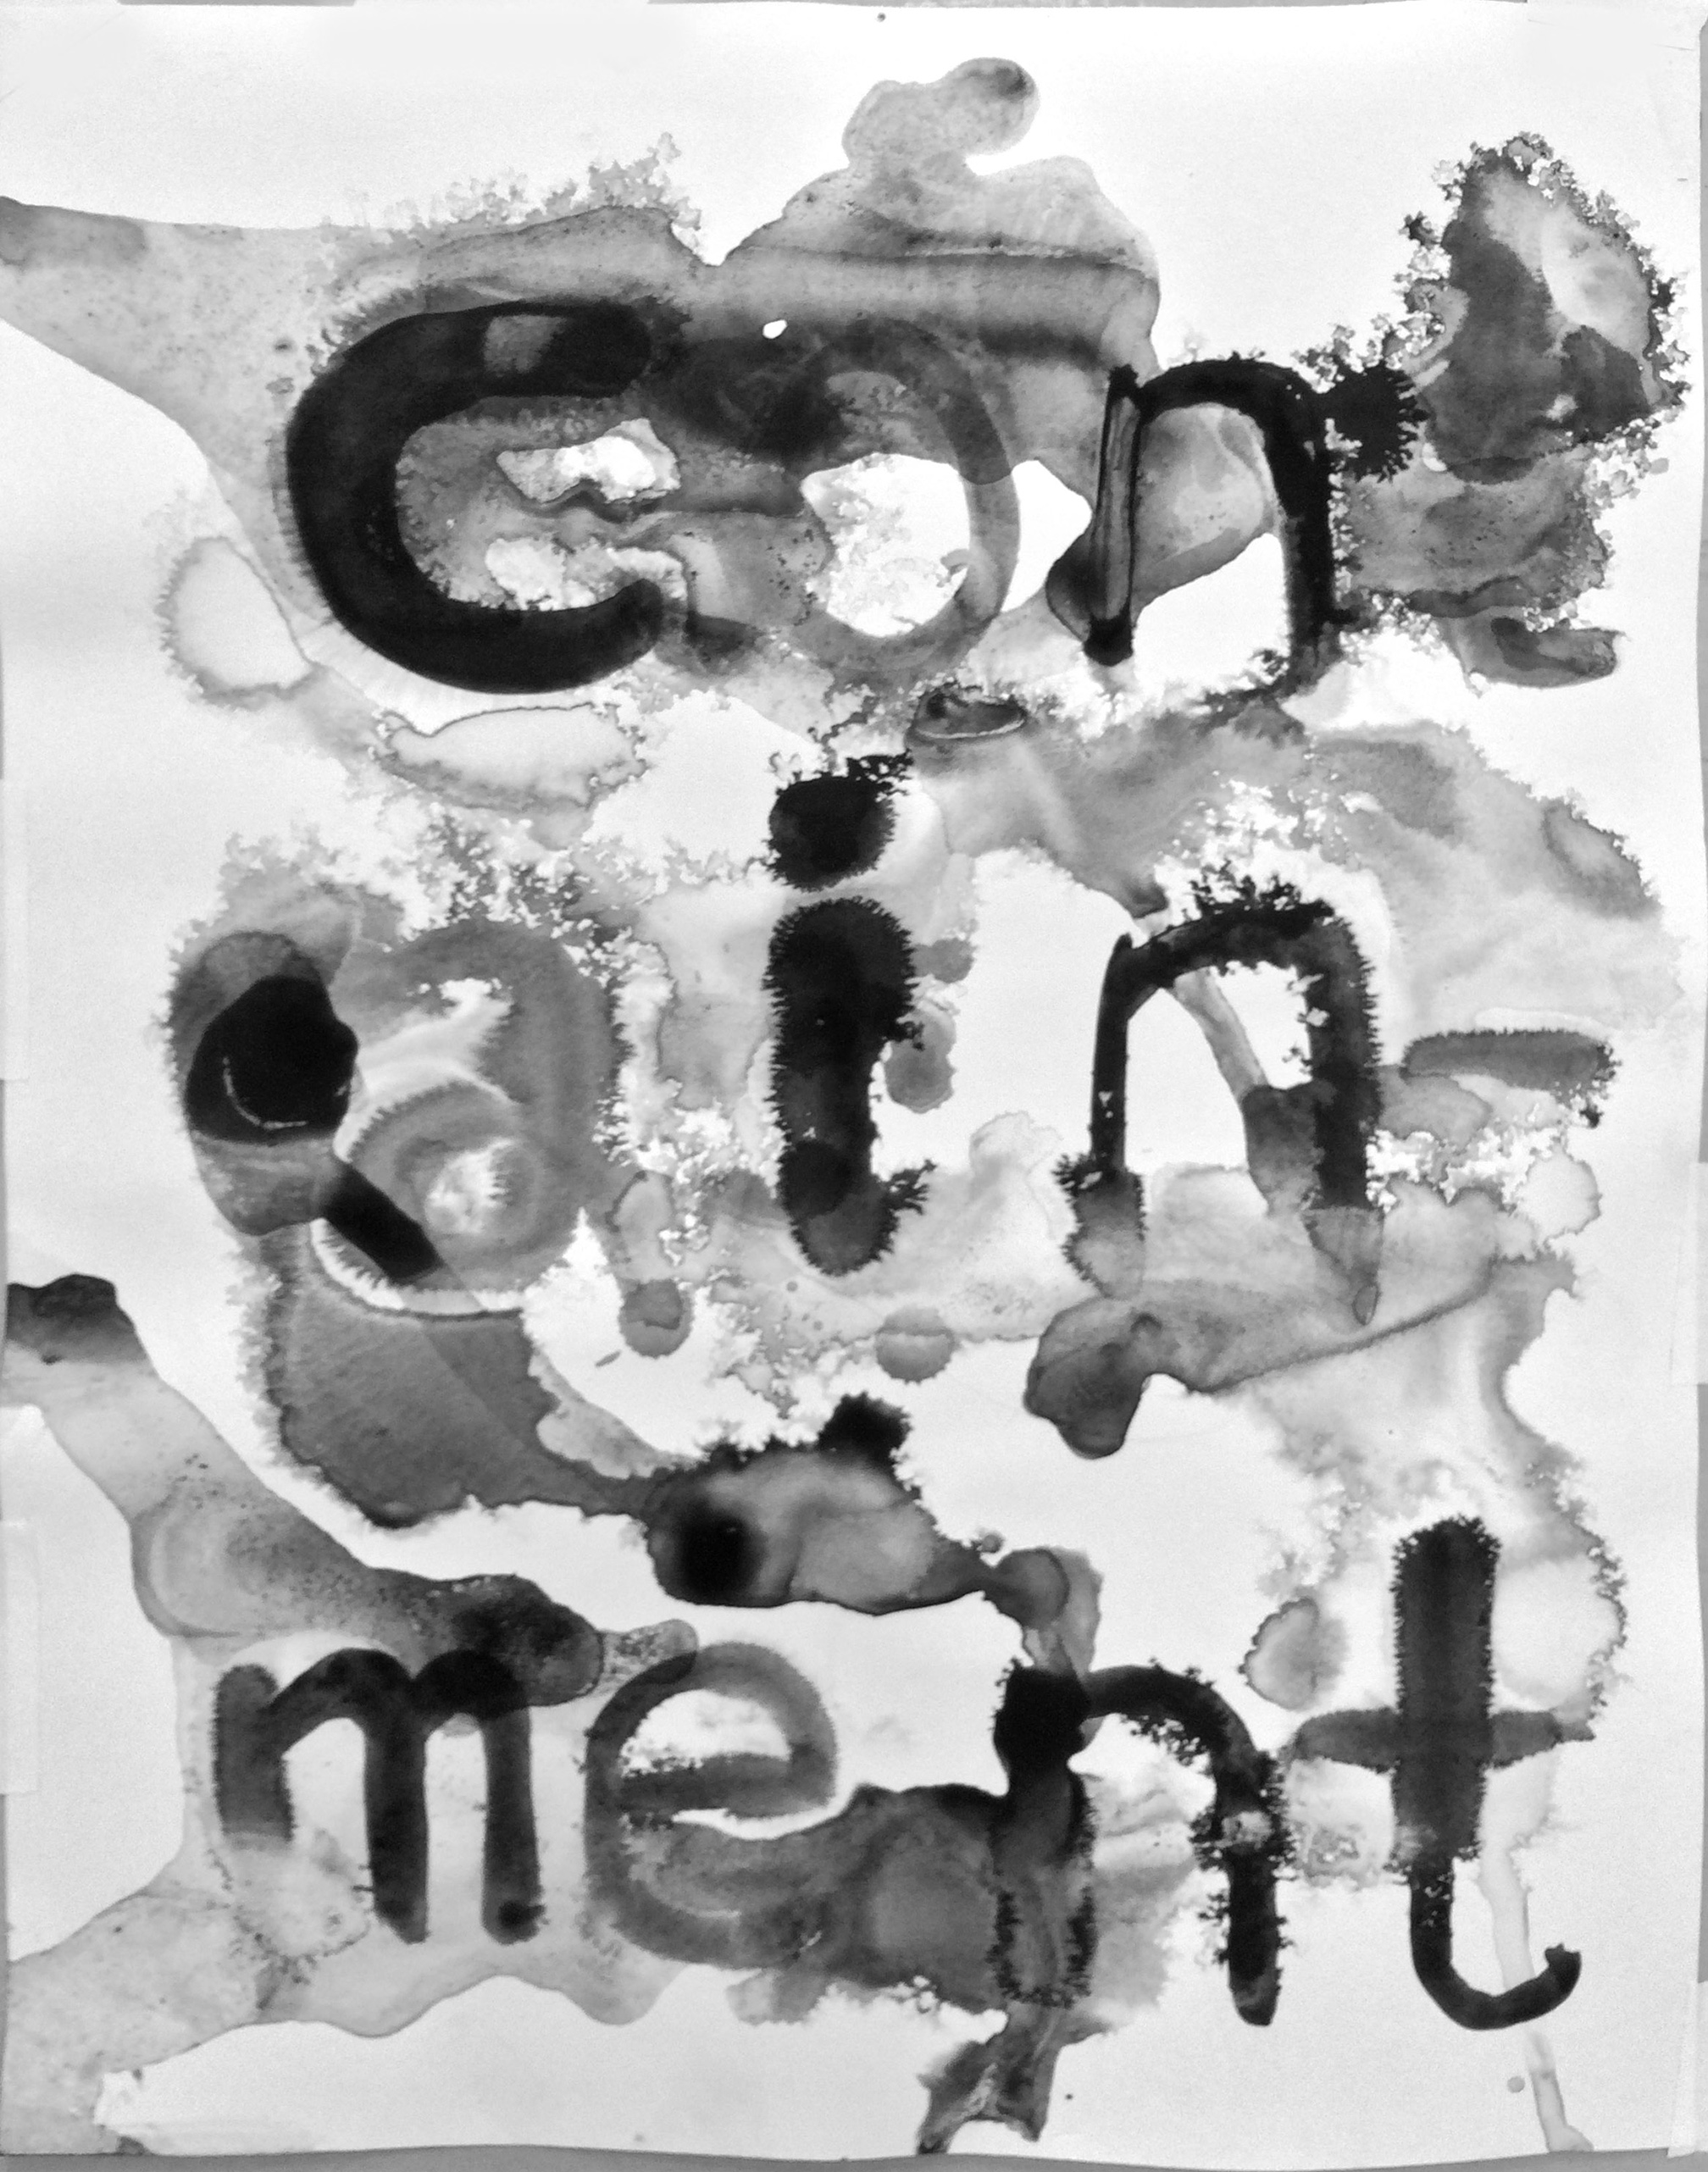 Con
ain-
ment